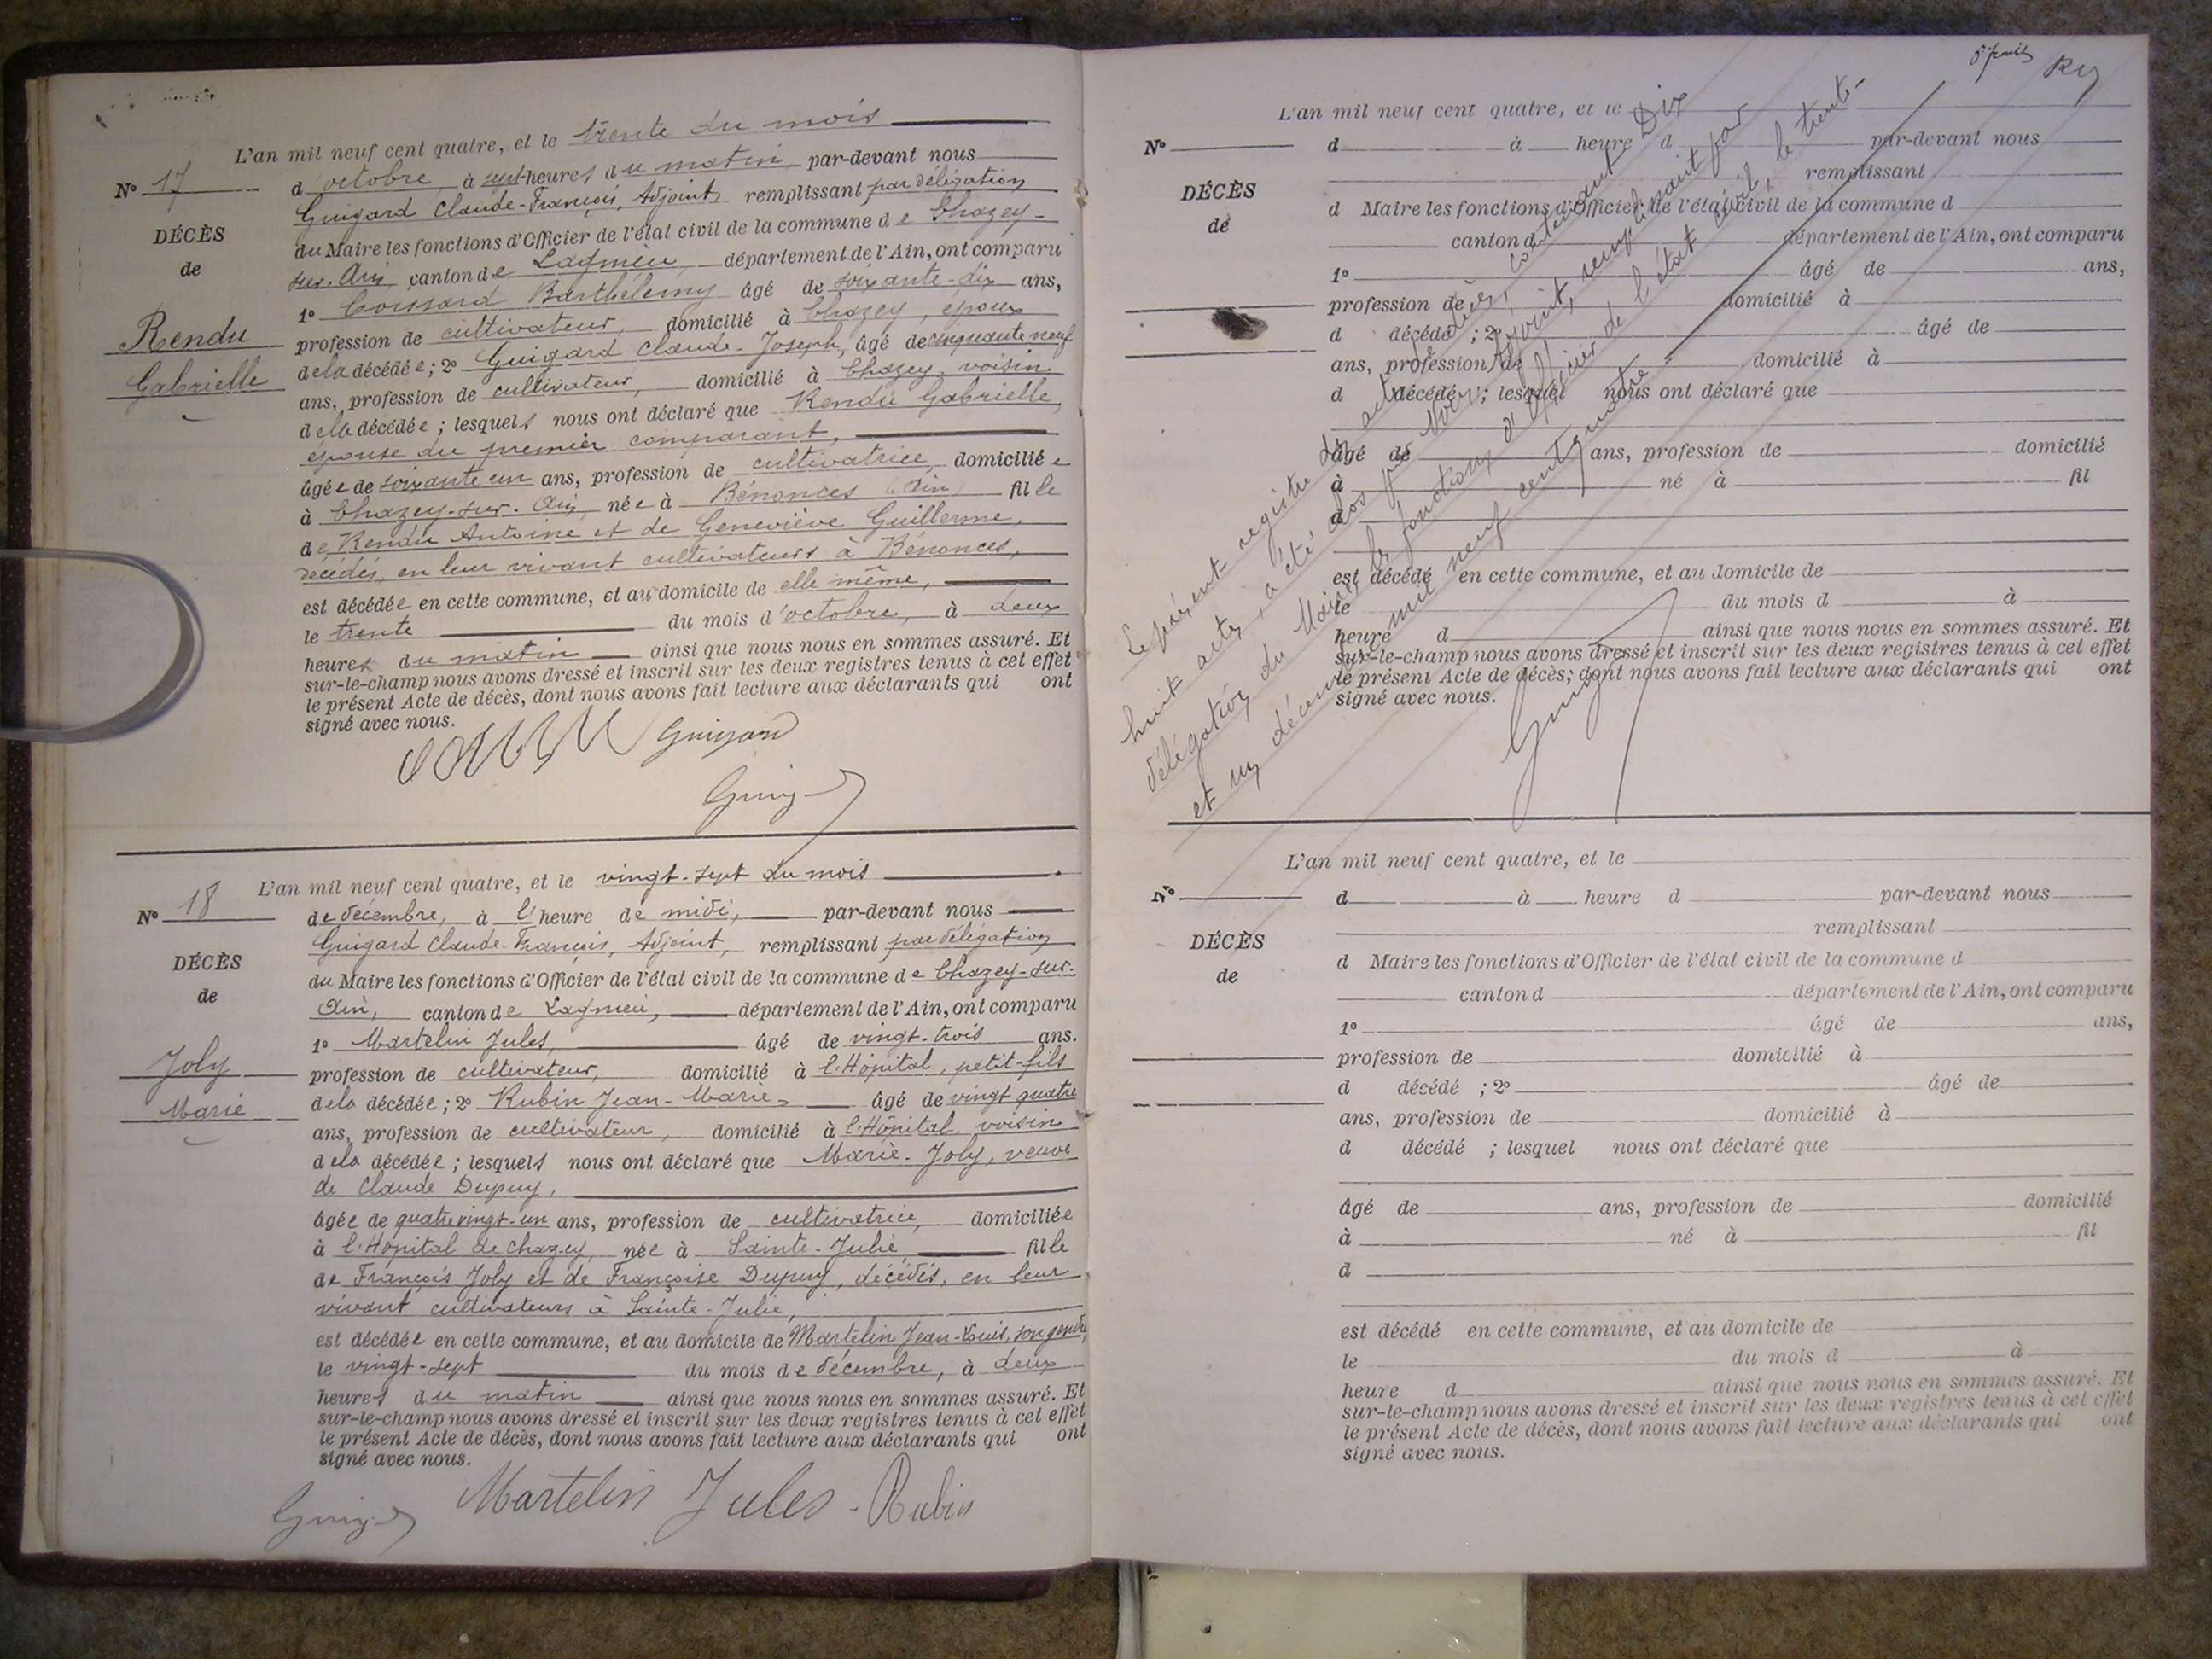 L'an mil neuf cent quatre, et le trente du mois
N° 17 d'octobre, à sept heures du matin, par-devant nous
Guigard Claude-François, Adjoint, remplissant par délégation
du Maire les fonctions d'Officier de l'état civil de la commune de Chazey-
sur-Ain, canton de Lagnieu, département de l'Ain, ont comparu
DÉCÈS
de
Rendu
Gabrielle
1° Coissard Barthélemy âgé de soixante-dix ans,
profession de cultivateur, domicilié à Chazey, époux
de la décédée; 2° Guigard Claude-Joseph, âgé de cinquante neuf
ans, profession de cultivateur, domicilié à Chazey, voisin
de la décédée; lesquels nous ont déclaré que Rendu Gabrielle,
épouse du premier comparant,
âgée de soixante un ans, profession de cultivatrice, domiciliée
à Chazey-sur-Ain, née à Bénonces (Ain) fille
de Rendu Antoine et de Geneviève Guillerme,
décédés, en leur vivant cultivateurs à Bénonces,
est décédée en cette commune, et au domicile de elle même,
le trente du mois d'octobre, à deux
heures du matin ainsi que nous nous en sommes assuré. Et
sur-le-champ nous avons dressé et inscrit sur les deux registres tenus à cet effet
le présent Acte de décès, dont nous avons fait lecture aux déclarants qui ont
signé avec nous.
Guigard
L'an mil neuf cent quatre, et le vingt-sept du mois
N° 18 de décembre, à l'heure de midi, par-devant nous
Guigard Claude-François, Adjoint, remplissant par délégation
du Maire les fonctions d'Officier de l'état civil de la commune de Chazey-sur-
Ain, canton de Lagnieu, département de l'Ain, ont comparu
DÉCÈS
de
Joly
Marie
1° Martelin Jules, âgé de vingt-trois ans.
profession de cultivateur, domicilié à l'Hôpital, petit-fils
de la décédée; 2° Rubin Jean-Marie, âgé de vingt quatre
ans, profession de cultivateur, domicilié à l'Hôpital, voisin
de la décédée; lesquels nous ont déclaré que Marie Joly, veuve
de Claude Dupuy,
âgée de quatre vingt-un ans, profession de cultivatrice, domiciliée
à l'Hôpital de Chazey, née à Sainte-Julie, fille
de François Joly et de Françoise Dupuy, décédés, en leur
vivant cultivateurs à Sainte-Julie,
est décédée en cette commune, et au domicile de Martelin Jean-Louis, son gendre,
le vingt-sept du mois de décembre, à deux
heures du matin ainsi que nous nous en sommes assuré. Et
sur-le-champ nous avons dressé et inscrit sur les deux registres tenus à cet effet
le présent Acte de décès, dont nous avons fait lecture aux déclarants qui ont
signé avec nous.
Martelin Jules Rubin
L'an mil neuf cent quatre, et le
N° d à heure d par-devant nous
remplissant
DÉCÈS
de
d Maire les fonctions d'Officier de l'état civil de la commune d
canton d département de l'Ain, ont comparu
1° âgé de ans,
profession de domicilié à
d décédé ; 2° âgé de
ans, profession de domicilié à
d décédé ; lesquel nous ont déclaré que
âgé de ans, profession de domicilié
à né à fil
d
est décédé en cette commune, et au domicile de
le du mois d à
heure d ainsi que nous nous en sommes assuré. Et
sur-le-champ nous avons dressé et inscrit sur les deux registres tenus à cet effet
le présent Acte de décès; dont nous avons fait lecture aux déclarants qui ont
signé avec nous.
Le présent registre des actes de décès, contenant Dix
huit actes, a été clos par Nous, Adjoint, remplissant par
délégation du Maire les fonctions d'Officier de l'état civil, le trente-
et un décembre mil neuf cent quatre
L'an mil neuf cent quatre, et le
N° d à heure d par-devant nous
remplissant
DÉCÈS
de
d Maire les fonctions d'Officier de l'état civil de la commune d
canton d département de l'Ain, ont comparu
1° âgé de ans,
profession de domicilié à
d décédé ; 2° âgé de
ans, profession de domicilié à
d décédé ; lesquel nous ont déclaré que
âgé de ans, profession de domicilié
à né à fil
d
est décédé en cette commune, et au domicile de
le du mois d à
heure d ainsi que nous nous en sommes assuré. Et
sur-le-champ nous avons dressé et inscrit sur les deux registres tenus à cet effet
le présent Acte de décès, dont nous avons fait lecture aux déclarants qui ont
signé avec nous.